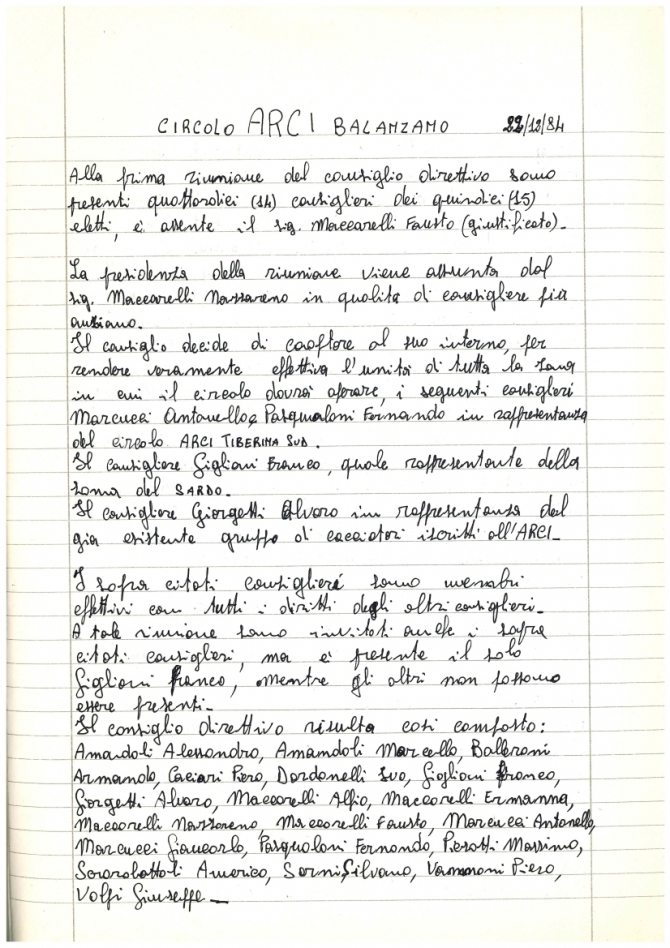 CIRCOLO ARCI BALANZANO 22/12/84
Alla prima riunione del consiglio direttivo sono
presenti quattordici (14) consiglieri dei quindici (15)
eletti, è assente il sig. Maccarelli Fausto (giustificato)-
La presidenza della riunione viene assunta dal
sig. Maccarelli Nazzareno in qualità di consigliere più
anziano.
Il consiglio decide di cooptare al suo interno, per
rendere veramente effettiva l'unità di tutta la zona
in cui il circolo dovrà operare, i seguenti consiglieri
Marcucci Antonello e Pasqualoni Fernando in rappresentanza
del circolo ARCI TIBERINA SUD.
Il consigliere Giglioni Franco, quale rappresentante della
zona del SARDO.
Il consigliere Giorgetti Alvaro in rappresentanza del
già esistente gruppo di cacciatori iscritti all'ARCI-
I sopra citati consiglieri sono membri
effettivi con tutti i diritti degli altri consiglieri-
A tale riunione sono invitati anche i sopra
citati consiglieri, ma è presente il solo
Giglioni Franco, mentre gli altri non possono
essere presenti-
Il consiglio direttivo risulta così composto:
Amandoli Alessandro, Amandoli Marcello, Balleroni
Armando, Caciari Piero, Dordonelli Ivo, Giglioni Franco,
Giorgetti Alvaro, Maccarelli Alfio, Maccarelli Ermanna,
Maccarelli Nazzareno, Maccarelli Fausto, Marcucci Antonello,
Marcucci Giancarlo, Pasqualoni Fernando, Pierotti Massimo,
Americo, Sarni Silvano, Piero,
Volpi Giuseppe-